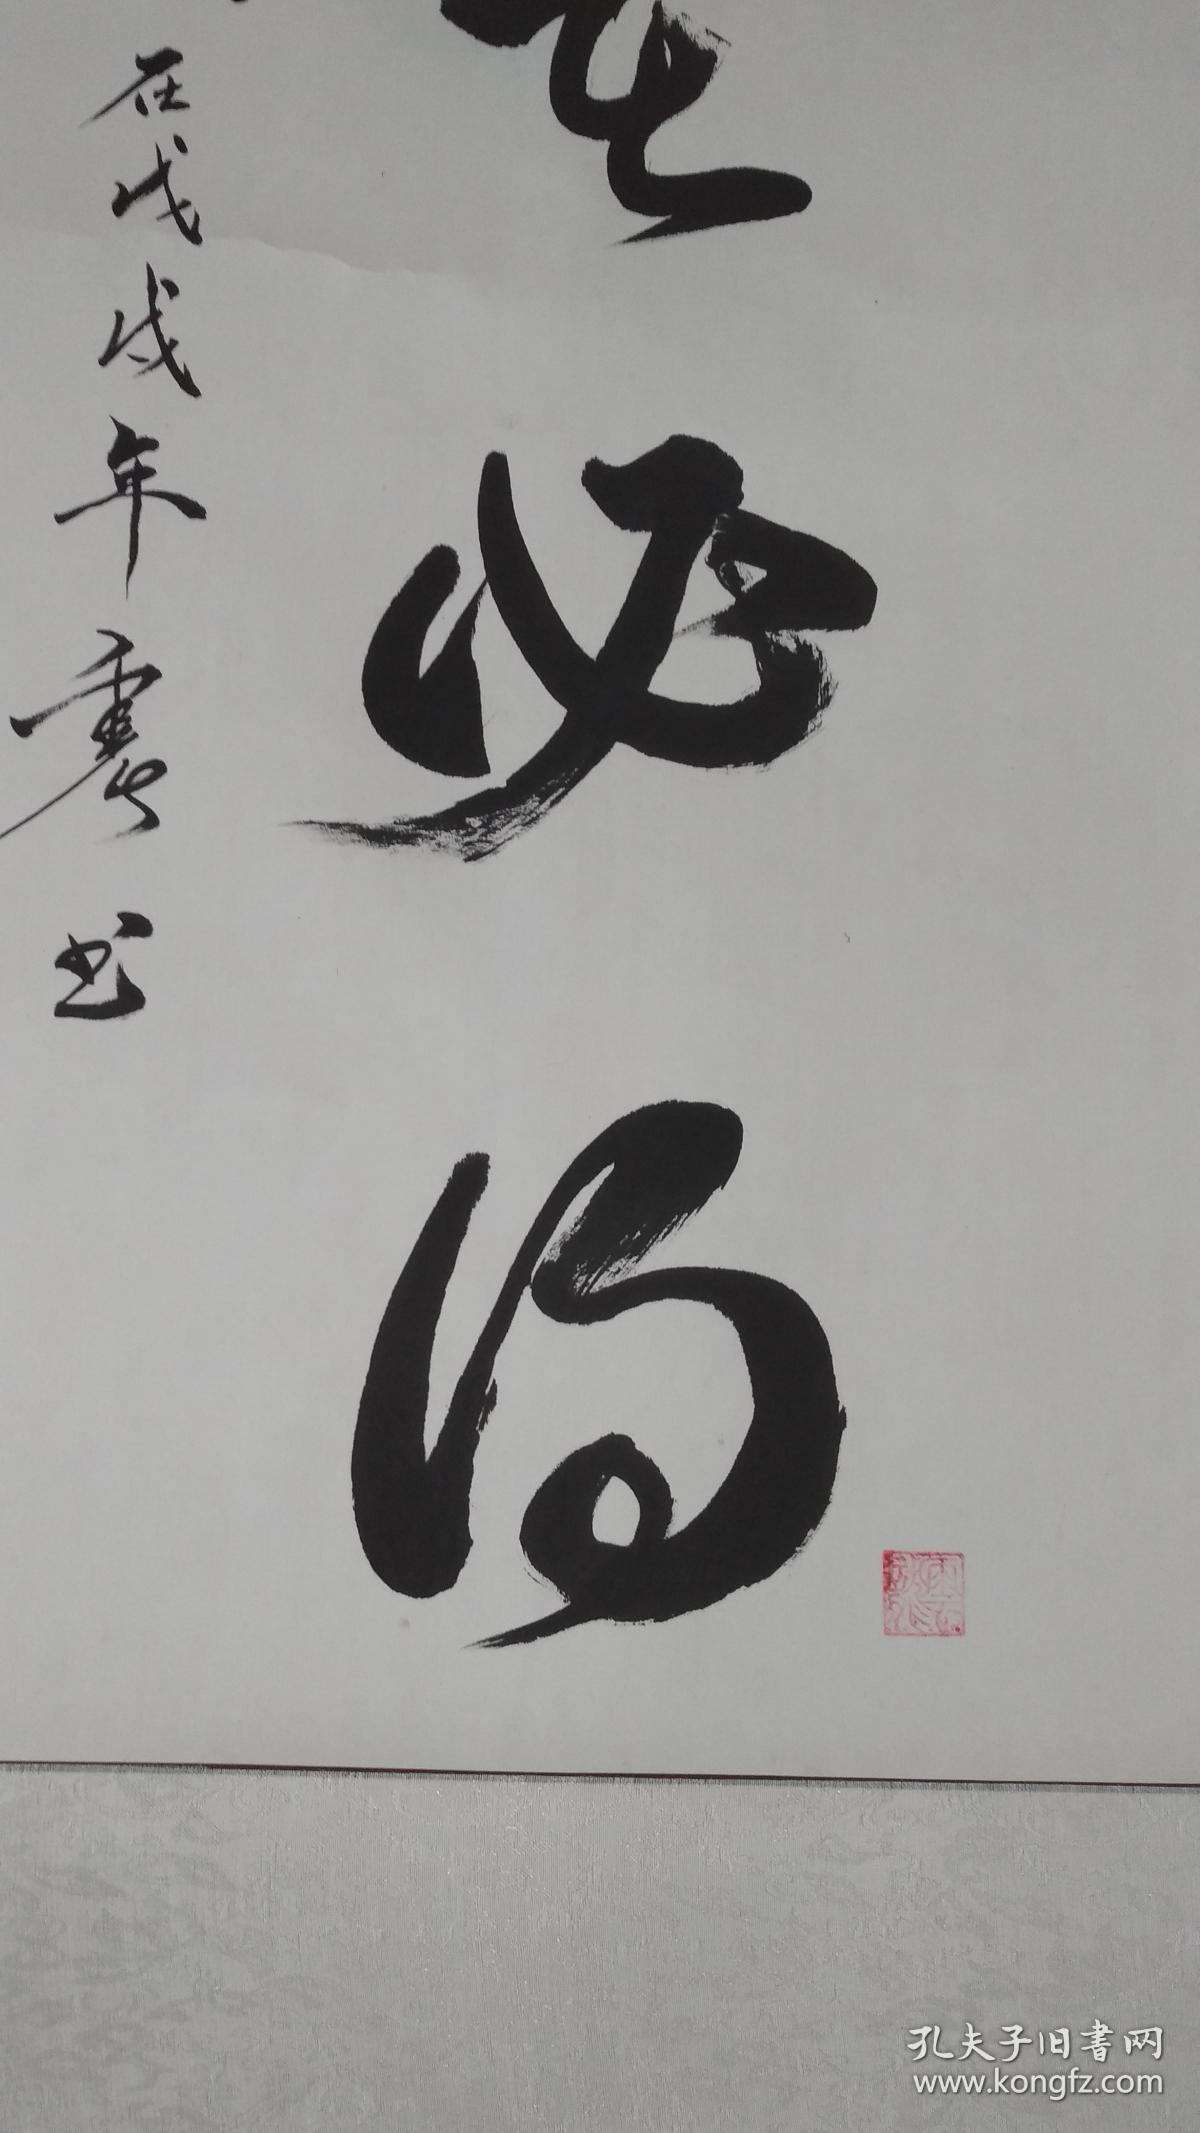 必得
在戊戌年
书
孔夫子旧書网
www.kongfz.com